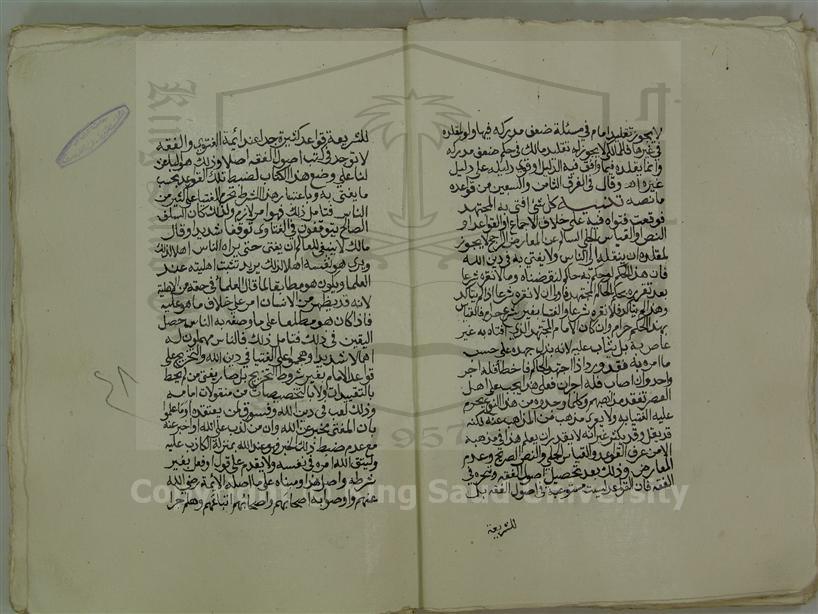 لا يجوز تقليد امام في مسئلة ضعف مدركه فيها ولو قلده
في غيرها فلا للمالكي يجوز له تقليد مالك في حكم ضعف مدركه
وانما يقلده فيما وافق فيه الدليل وقوي دليله على دليل
غيره اهـ وقال في الفرق الثامن والسبعين من قواعده
ما نصه تنبيه كل شي افتى به المجتهد
فوقعت فتواه فيه على خلاف الاجماع او القواعد او
النص او القياس الجلي السالم عن المعارض الراجح لا يجوز
لمقلده ان ينقله الى الناس ولا يفتي به في دين الله
فان هذا الحكم لو حكم به حاكم لنقضناه وما لا نقره شرعا
بعد تقرره بحكم الحاكم المجتهد فاولى ان لا نقره شرعا اذا لم يتأكد
وهذا لم يتأكد فلا نقره شرعا والفتيا بغير شرع حرام فالفتيا
بهذا الحكم حرام وان كان الامام المجتهد الذي افتاه به غير
عاص به بل يثاب عليه لانه بذل جهده على حسب
ما امر به فقد ورد اذا اجتهد الحاكم فاخطأ فله اجر
واحد وان اصاب فله اجران فعلى هذا يجب على اهل
العصر تفقد مذاهبهم وكلما وجدوه من هذا النوع يحرم
عليه الفتيا به ولا يعرى مذهب من المذاهب عنه لكنه
قد يقل وقد يكثر غير انه لا يقدر ان يعلم هذا في مذهبه
الا من عرف القواعد والقياس الجلي والنص الصريح وعدم
المعارض وذلك بعد تحصيل اصول الفقه وتبحره في
الفقه فان القواعد ليست مستوعبة في اصول الفقه بل
للشريعة
للشريعة قواعد كثيرة جدا عند ائمة الفتوى والفقه
لا توجد في كتب اصول الفقه اصلا وذلك هو الباعث
لنا على وضع هذا الكتاب لضبط تلك القواعد بحسب
ما يفتى به وباعتبار هذا الشرط تحرم الفتيا على كثير من
الناس فتأمل ذلك فهو امر لازم ولذلك كان السلف
الصالح يتوقفون في الفتاوى توقفا شديدا وقال
مالك لا ينبغي للعالم ان يفتي حتى يراه الناس اهلا لذلك
ويرى هو نفسه اهلا لذلك يريد تثبت اهليته عند
العلما ويكون هو مطابقا لما قال العلما في حقه من الاهلية
لانه قد يظهر من الانسان امر على خلاف ما هو عليه
فاذا كان هو مطلعا على ما وصفه به الناس حصل
اليقين في ذلك فتأمل ذلك فالناس مهملون له
اهمالا شديدا وهجموا على الفتيا في دين الله والتخريج على
قواعد الامام بغير شروط التخريج بل صار يفتي من لم يحط
بالتقييدات ولا بالتخصيصات من منقولات امامه
وذلك لعب في دين الله وفسوق ممن يعتقده او ما علموا
بان المفتي مخبر عن الله وان من كذب على الله او اخبر عنه
مع عدم ضبط ذلك الخبر فهو عند الله بمنزلة الكاذب عليه
وليتق الله امرء في نفسه ولا يقدم على قول او فعل بغير
شرطه واصل هذا ومبناه على ما اصله الائمة رضي الله
عنهم واوصوا به اصحابهم واصحابهم اتباعهم وهلم جرا
٤٨
King Saud University
1957
Copyright © King Saud University